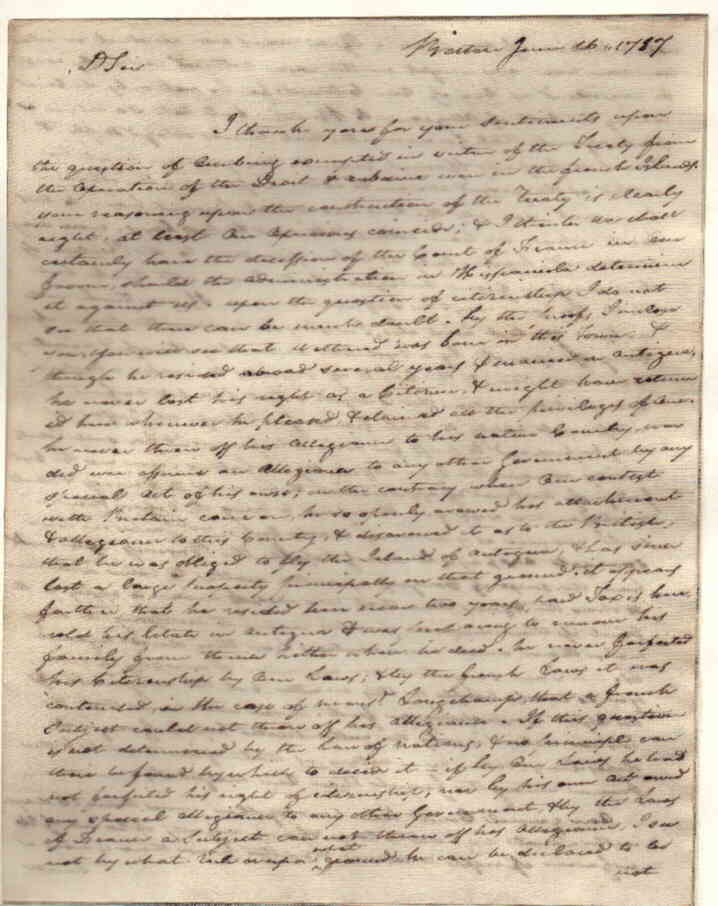 Boston June 16. 1787
D Sir
I thank you for your sentiments upon
the question of being exempted in virtue of the Treaty from
the operation of the Droit d'aubaine even in the french Islands.
your reasoning upon the construction of the Treaty is clearly
right, at least our opinions coincide; & I think we shall
certainly have the decision of the Court of France in our
favour, should the administration in Hispaniola determine
it against us. upon the question of citizenship I do not
see that there can be much doubt. by the proofs I inclose
you, you will see that was born in this Town, &
though he resided abroad several years & married in Antigua,
he never lost his right as a Citizen, & might have return
ed here whenever he pleased, & claimed all the privileges of one.
he never threw off his allegiance to his native Country, nor
did ever affirm an allegiance to any other Government by any
special act of his own; on the contrary when our contest
with Britain came on, he so openly avowed his attachment
& allegiance to this Country, & disavowed it as to the British,
that he was obliged to fly the Island of Antigua, & has since
lost a large property principally on that ground. it appears
further that he resided here near two years, paid Taxes here,
sold his Estate in Antigua & was but away to remove his
family from thence hither when he died. he never forfeited
his Citizenship by our Laws; & by the french Laws it was
contended in the case of Longchamps, that a french
Subject could not throw off his allegiance. If this question
is not determined by the Law of nations, & no principle can
there be found by which to decide it - if by our Laws he had
not forfeited his right of citizenship, nor by his own act owed
any special allegiance to any other Government & by the Laws
of France a Subject can not throw off his allegiance, I see
not by what rule or upon what ground he can be declared to be
not